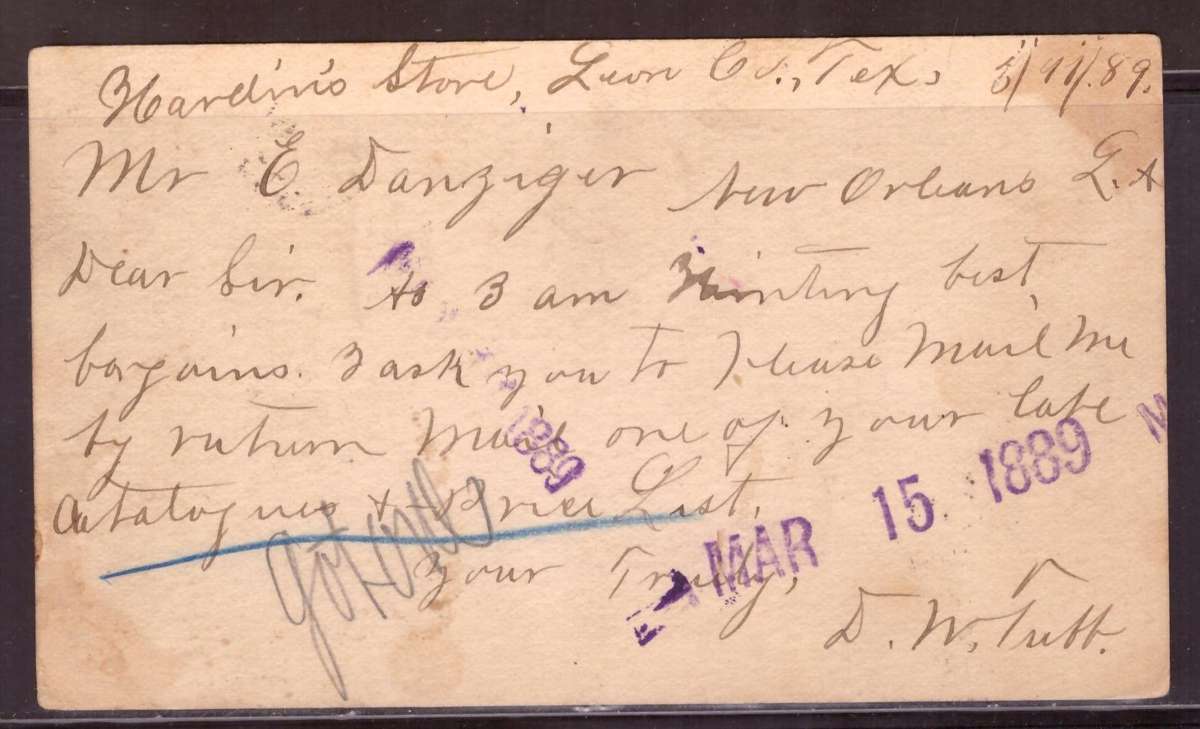 Hardin's Store, Leon Co., Tex, 3/11/89.
Mr E. Danziger New Orleans La
Dear Sir. As I am Hunting best
bargains. I ask you to Please Mail Me
by return Mail one of your late
Catalogues & Price List.
Your Truly,
D. W. Tubb.
got one
1889
MAR 15 1889
M